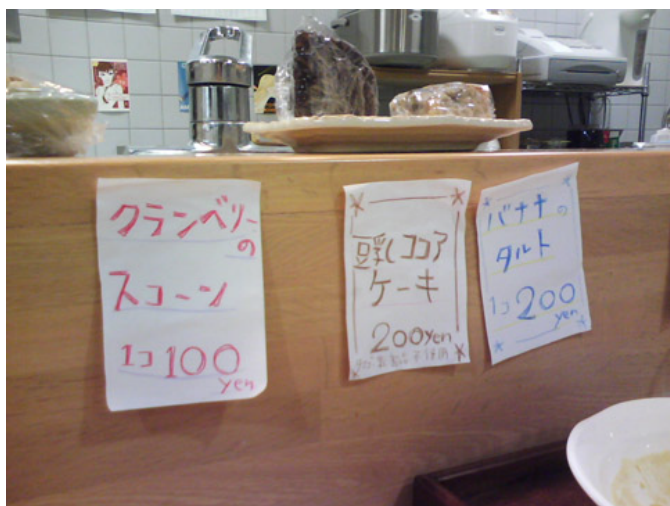 クランベリーの
スコーン
1コ100
yen
豆乳ココア
ケーキ
200yen
バナナの
タルト
1コ200
yen